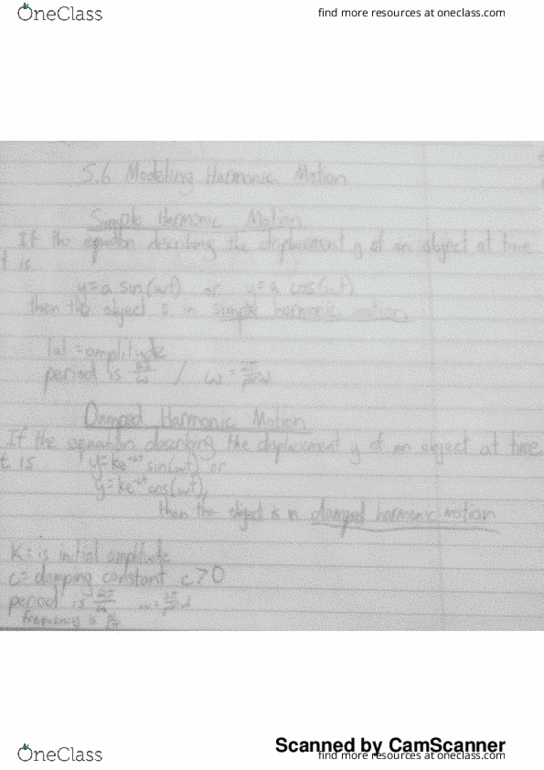 OneClass
find more resources at oneclass.com
5.6 Modeling Harmonic Motion
Simple Harmonic Motion
If the equation describing the displacement y of an object at time
t is
y=a sin(wt) or y=a cos(wt)
then the object is in simple harmonic motion.
|a| = amplitude
period is 2π/ω / ω = 2π/period
Damped Harmonic Motion
If the equation describing the displacement y of an object at time
t is y=ke^-ct sin(wt) or
y=ke^-ct cos(wt),
then the object is in damped harmonic motion
K= is initial amplitude
c= damping constant c>0
period is 2π/ω ω=2π/period
frequency is
Scanned by CamScanner
OneClass
find more resources at oneclass.com